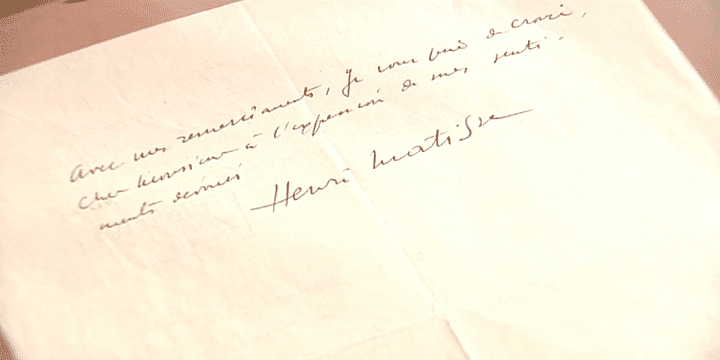 Avec mes remerciements, je vous prie de croire,
cher Monsieur à l'expression de mes senti-
ments dévoués
Henri Matisse